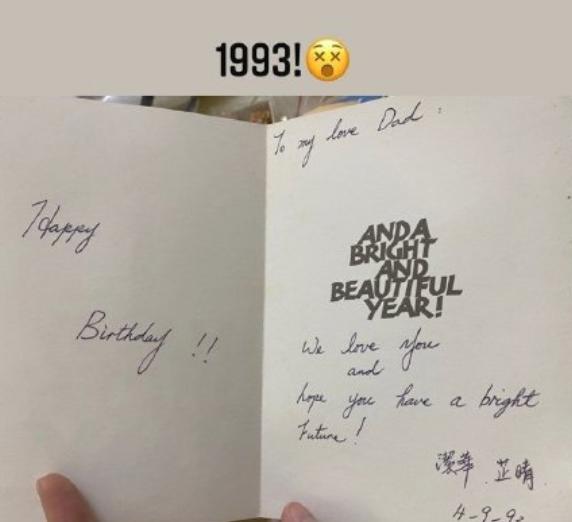 1993!😵
To my love Dad :
Happy
Birthday !!
AND A
BRIGHT
AND
BEAUTIFUL
YEAR!
We love you
and
hope you have a bright
Future!
潔華 芷晴
4-9-93